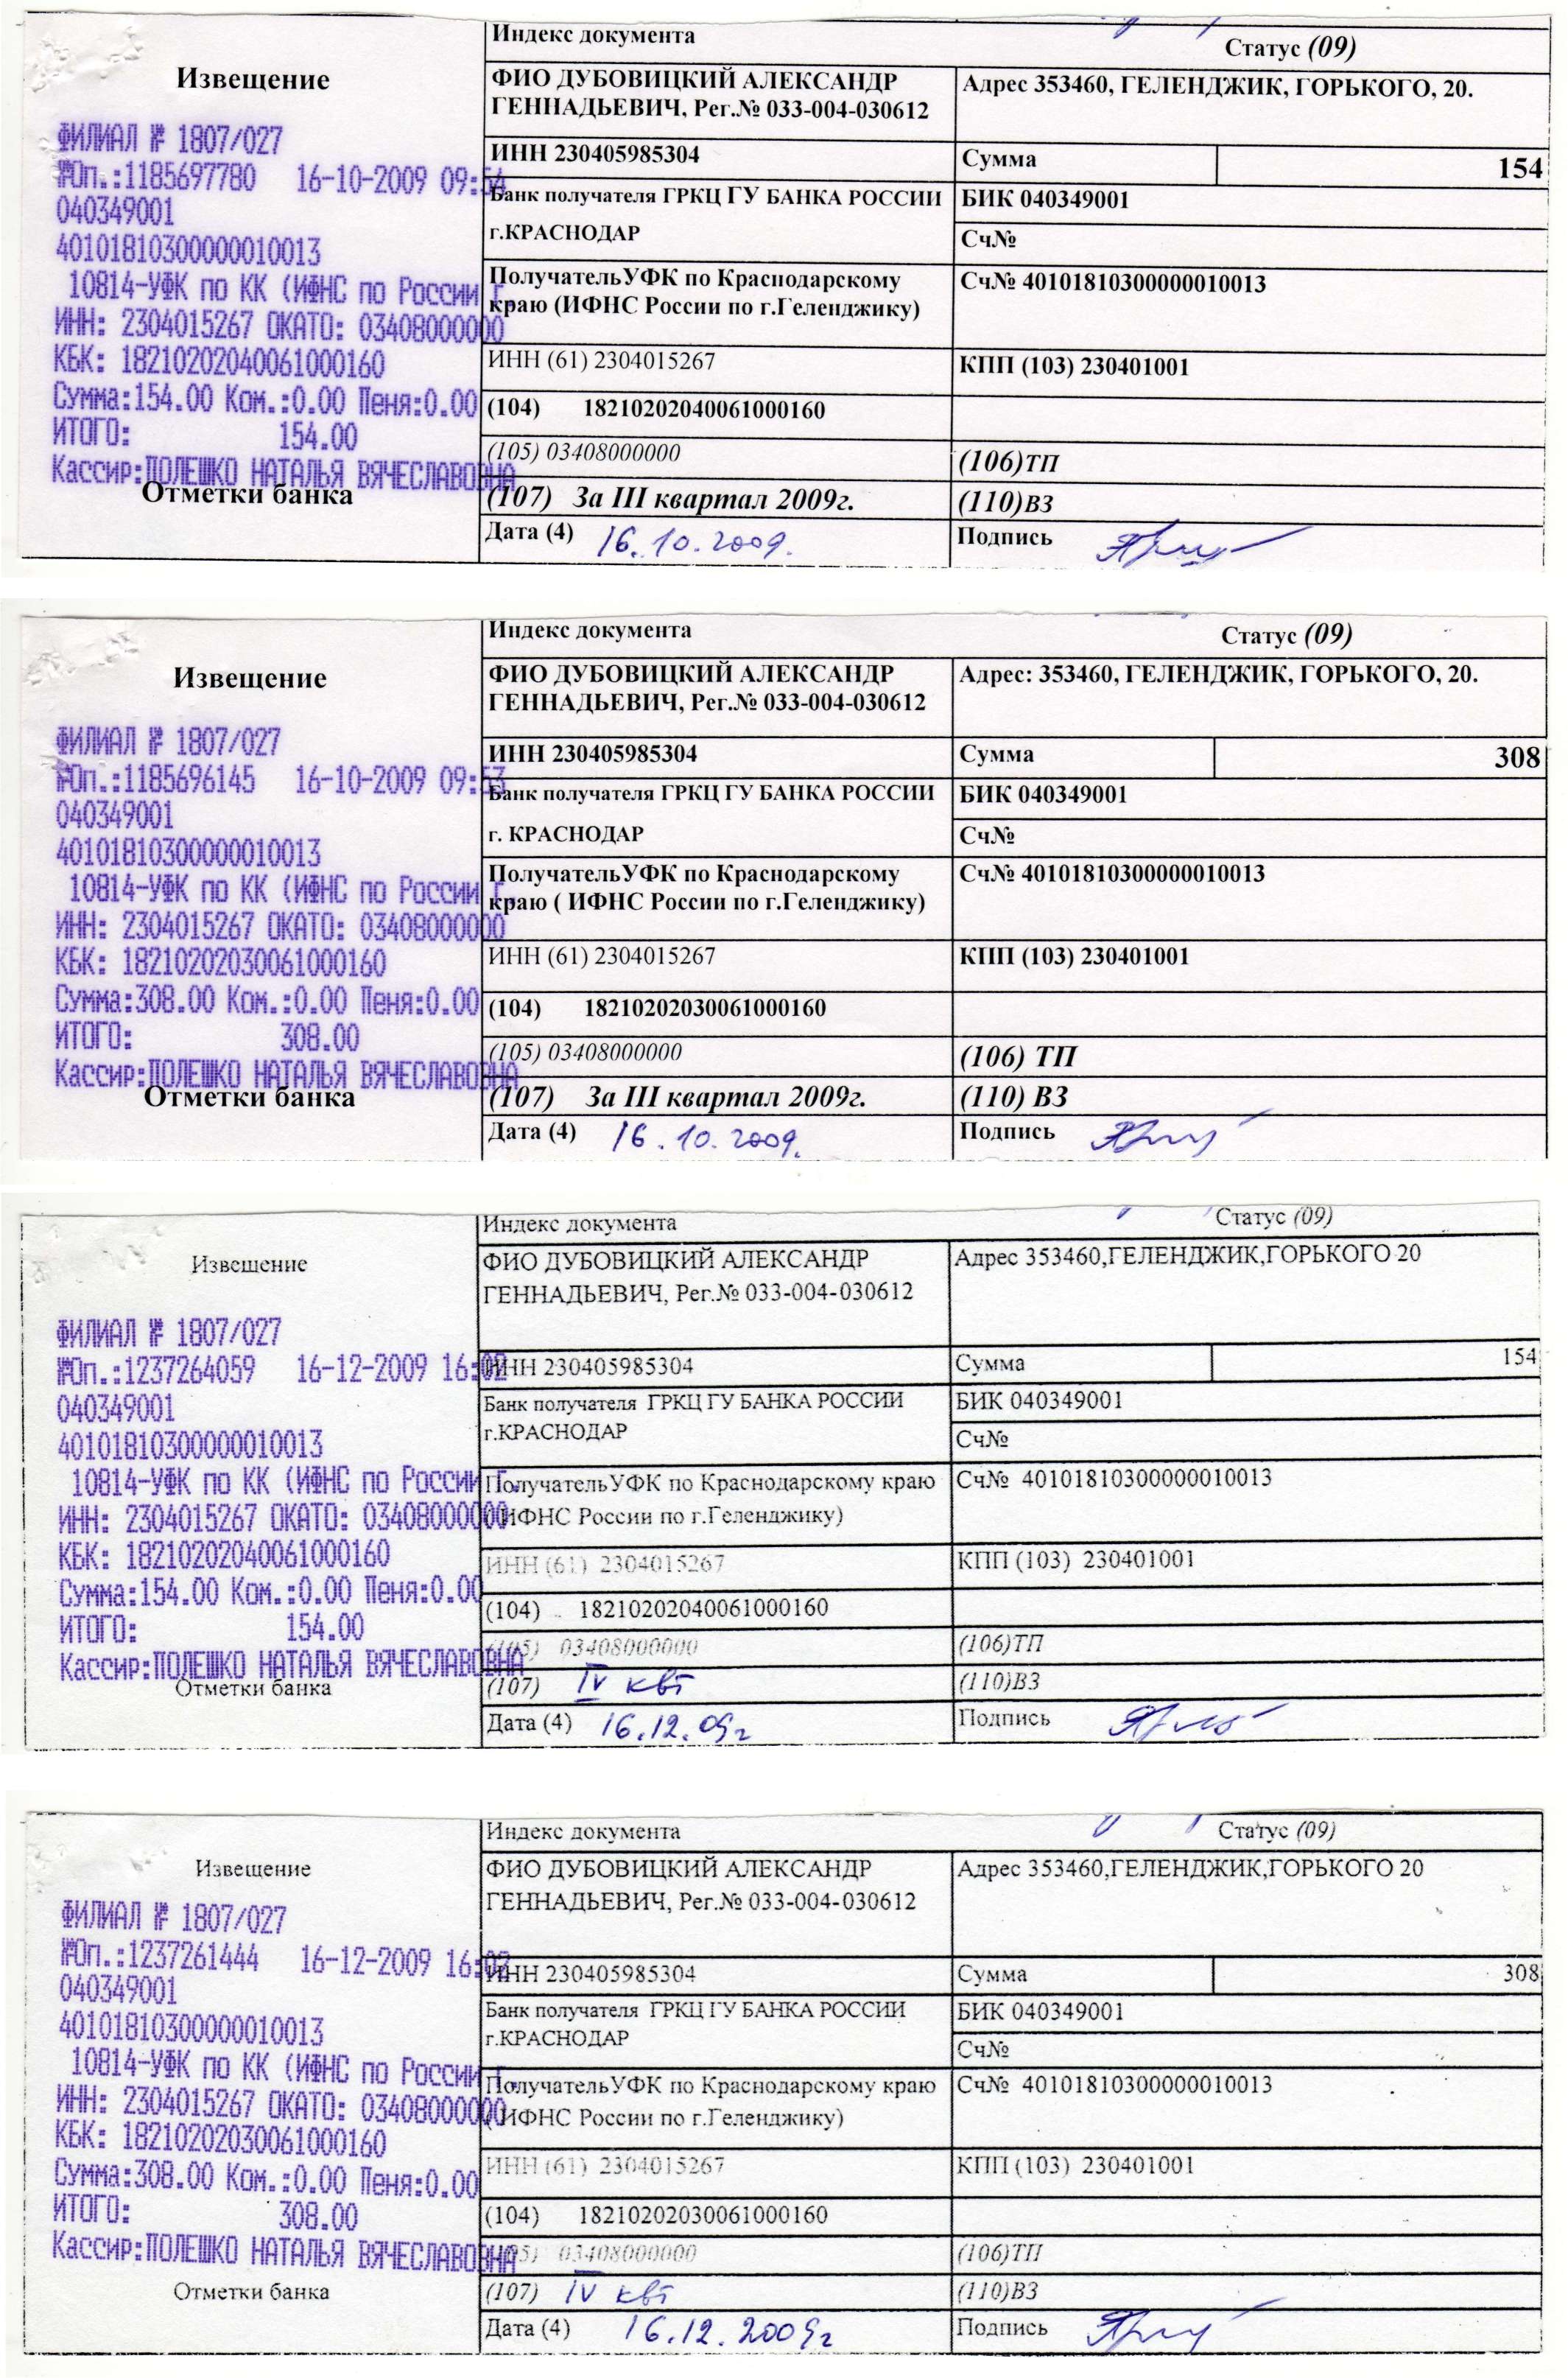 Индекс документа
Статус (09)
Извещение
ФИО ДУБОВИЦКИЙ АЛЕКСАНДР
ГЕННАДЬЕВИЧ, Рег.№ 033-004-030612
Адрес 353460, ГЕЛЕНДЖИК, ГОРЬКОГО, 20.
ФИЛИАЛ № 1807/027
№Оп.:1185697780 16-10-2009 09:54
040349001
40101810300000010013
10814-УФК по КК (ИФНС по России г.
ИНН: 2304015267 ОКАТО: 03408000000
КБК: 18210202040061000160
Сумма:154.00 Ком.:0.00 Пеня:0.00
ИТОГО: 154.00
Кассир:ПОЛЕШКО НАТАЛЬЯ ВЯЧЕСЛАВОВНА
Отметки банка
ИНН 230405985304
Сумма 154
Банк получателя ГРКЦ ГУ БАНКА РОССИИ
г.КРАСНОДАР
БИК 040349001
Сч№
ПолучательУФК по Краснодарскому
краю (ИФНС России по г.Геленджику)
Сч№ 40101810300000010013
ИНН (61) 2304015267
КПП (103) 230401001
(104) 18210202040061000160
(105) 03408000000
(106)ТП
(107) За III квартал 2009г.
(110)ВЗ
Дата (4) 16.10.2009.
Подпись
Индекс документа
Статус (09)
Извещение
ФИО ДУБОВИЦКИЙ АЛЕКСАНДР
ГЕННАДЬЕВИЧ, Рег.№ 033-004-030612
Адрес: 353460, ГЕЛЕНДЖИК, ГОРЬКОГО, 20.
ФИЛИАЛ № 1807/027
№Оп.:1185696145 16-10-2009 09:53
040349001
40101810300000010013
10814-УФК по КК (ИФНС по России г.
ИНН: 2304015267 ОКАТО: 03408000000
КБК: 18210202030061000160
Сумма:308.00 Ком.:0.00 Пеня:0.00
ИТОГО: 308.00
Кассир:ПОЛЕШКО НАТАЛЬЯ ВЯЧЕСЛАВОВНА
Отметки банка
ИНН 230405985304
Сумма 308
Банк получателя ГРКЦ ГУ БАНКА РОССИИ
г. КРАСНОДАР
БИК 040349001
Сч№
ПолучательУФК по Краснодарскому
краю ( ИФНС России по г.Геленджику)
Сч№ 40101810300000010013
ИНН (61) 2304015267
КПП (103) 230401001
(104) 18210202030061000160
(105) 03408000000
(106) ТП
(107) За III квартал 2009г.
(110) ВЗ
Дата (4) 16.10.2009.
Подпись
Индекс документа
Статус (09)
Извещение
ФИО ДУБОВИЦКИЙ АЛЕКСАНДР
ГЕННАДЬЕВИЧ, Рег.№ 033-004-030612
Адрес 353460,ГЕЛЕНДЖИК,ГОРЬКОГО 20
ФИЛИАЛ № 1807/027
№Оп.:1237264059 16-12-2009 16:02
040349001
40101810300000010013
10814-УФК по КК (ИФНС по России г.
ИНН: 2304015267 ОКАТО: 03408000000
КБК: 18210202040061000160
Сумма:154.00 Ком.:0.00 Пеня:0.00
ИТОГО: 154.00
Кассир:ПОЛЕШКО НАТАЛЬЯ ВЯЧЕСЛАВОВНА
Отметки банка
ИНН 230405985304
Сумма 154
Банк получателя ГРКЦ ГУ БАНКА РОССИИ
г.КРАСНОДАР
БИК 040349001
Сч№
ПолучательУФК по Краснодарскому краю
(ИФНС России по г.Геленджику)
Сч№ 40101810300000010013
ИНН (61) 2304015267
КПП (103) 230401001
(104) 18210202040061000160
(105) 03408000000
(106)ТП
(107) IV кв
(110)ВЗ
Дата (4) 16.12.09г
Подпись
Индекс документа
Статус (09)
Извещение
ФИО ДУБОВИЦКИЙ АЛЕКСАНДР
ГЕННАДЬЕВИЧ, Рег.№ 033-004-030612
Адрес 353460,ГЕЛЕНДЖИК,ГОРЬКОГО 20
ФИЛИАЛ № 1807/027
№Оп.:1237261444 16-12-2009 16:02
040349001
40101810300000010013
10814-УФК по КК (ИФНС по России г.
ИНН: 2304015267 ОКАТО: 03408000000
КБК: 18210202030061000160
Сумма:308.00 Ком.:0.00 Пеня:0.00
ИТОГО: 308.00
Кассир:ПОЛЕШКО НАТАЛЬЯ ВЯЧЕСЛАВОВНА
Отметки банка
ИНН 230405985304
Сумма 308
Банк получателя ГРКЦ ГУ БАНКА РОССИИ
г.КРАСНОДАР
БИК 040349001
Сч№
ПолучательУФК по Краснодарскому краю
(ИФНС России по г.Геленджику)
Сч№ 40101810300000010013
ИНН (61) 2304015267
КПП (103) 230401001
(104) 18210202030061000160
(105) 03408000000
(106)ТП
(107) IV кв
(110)ВЗ
Дата (4) 16.12.2009г
Подпись